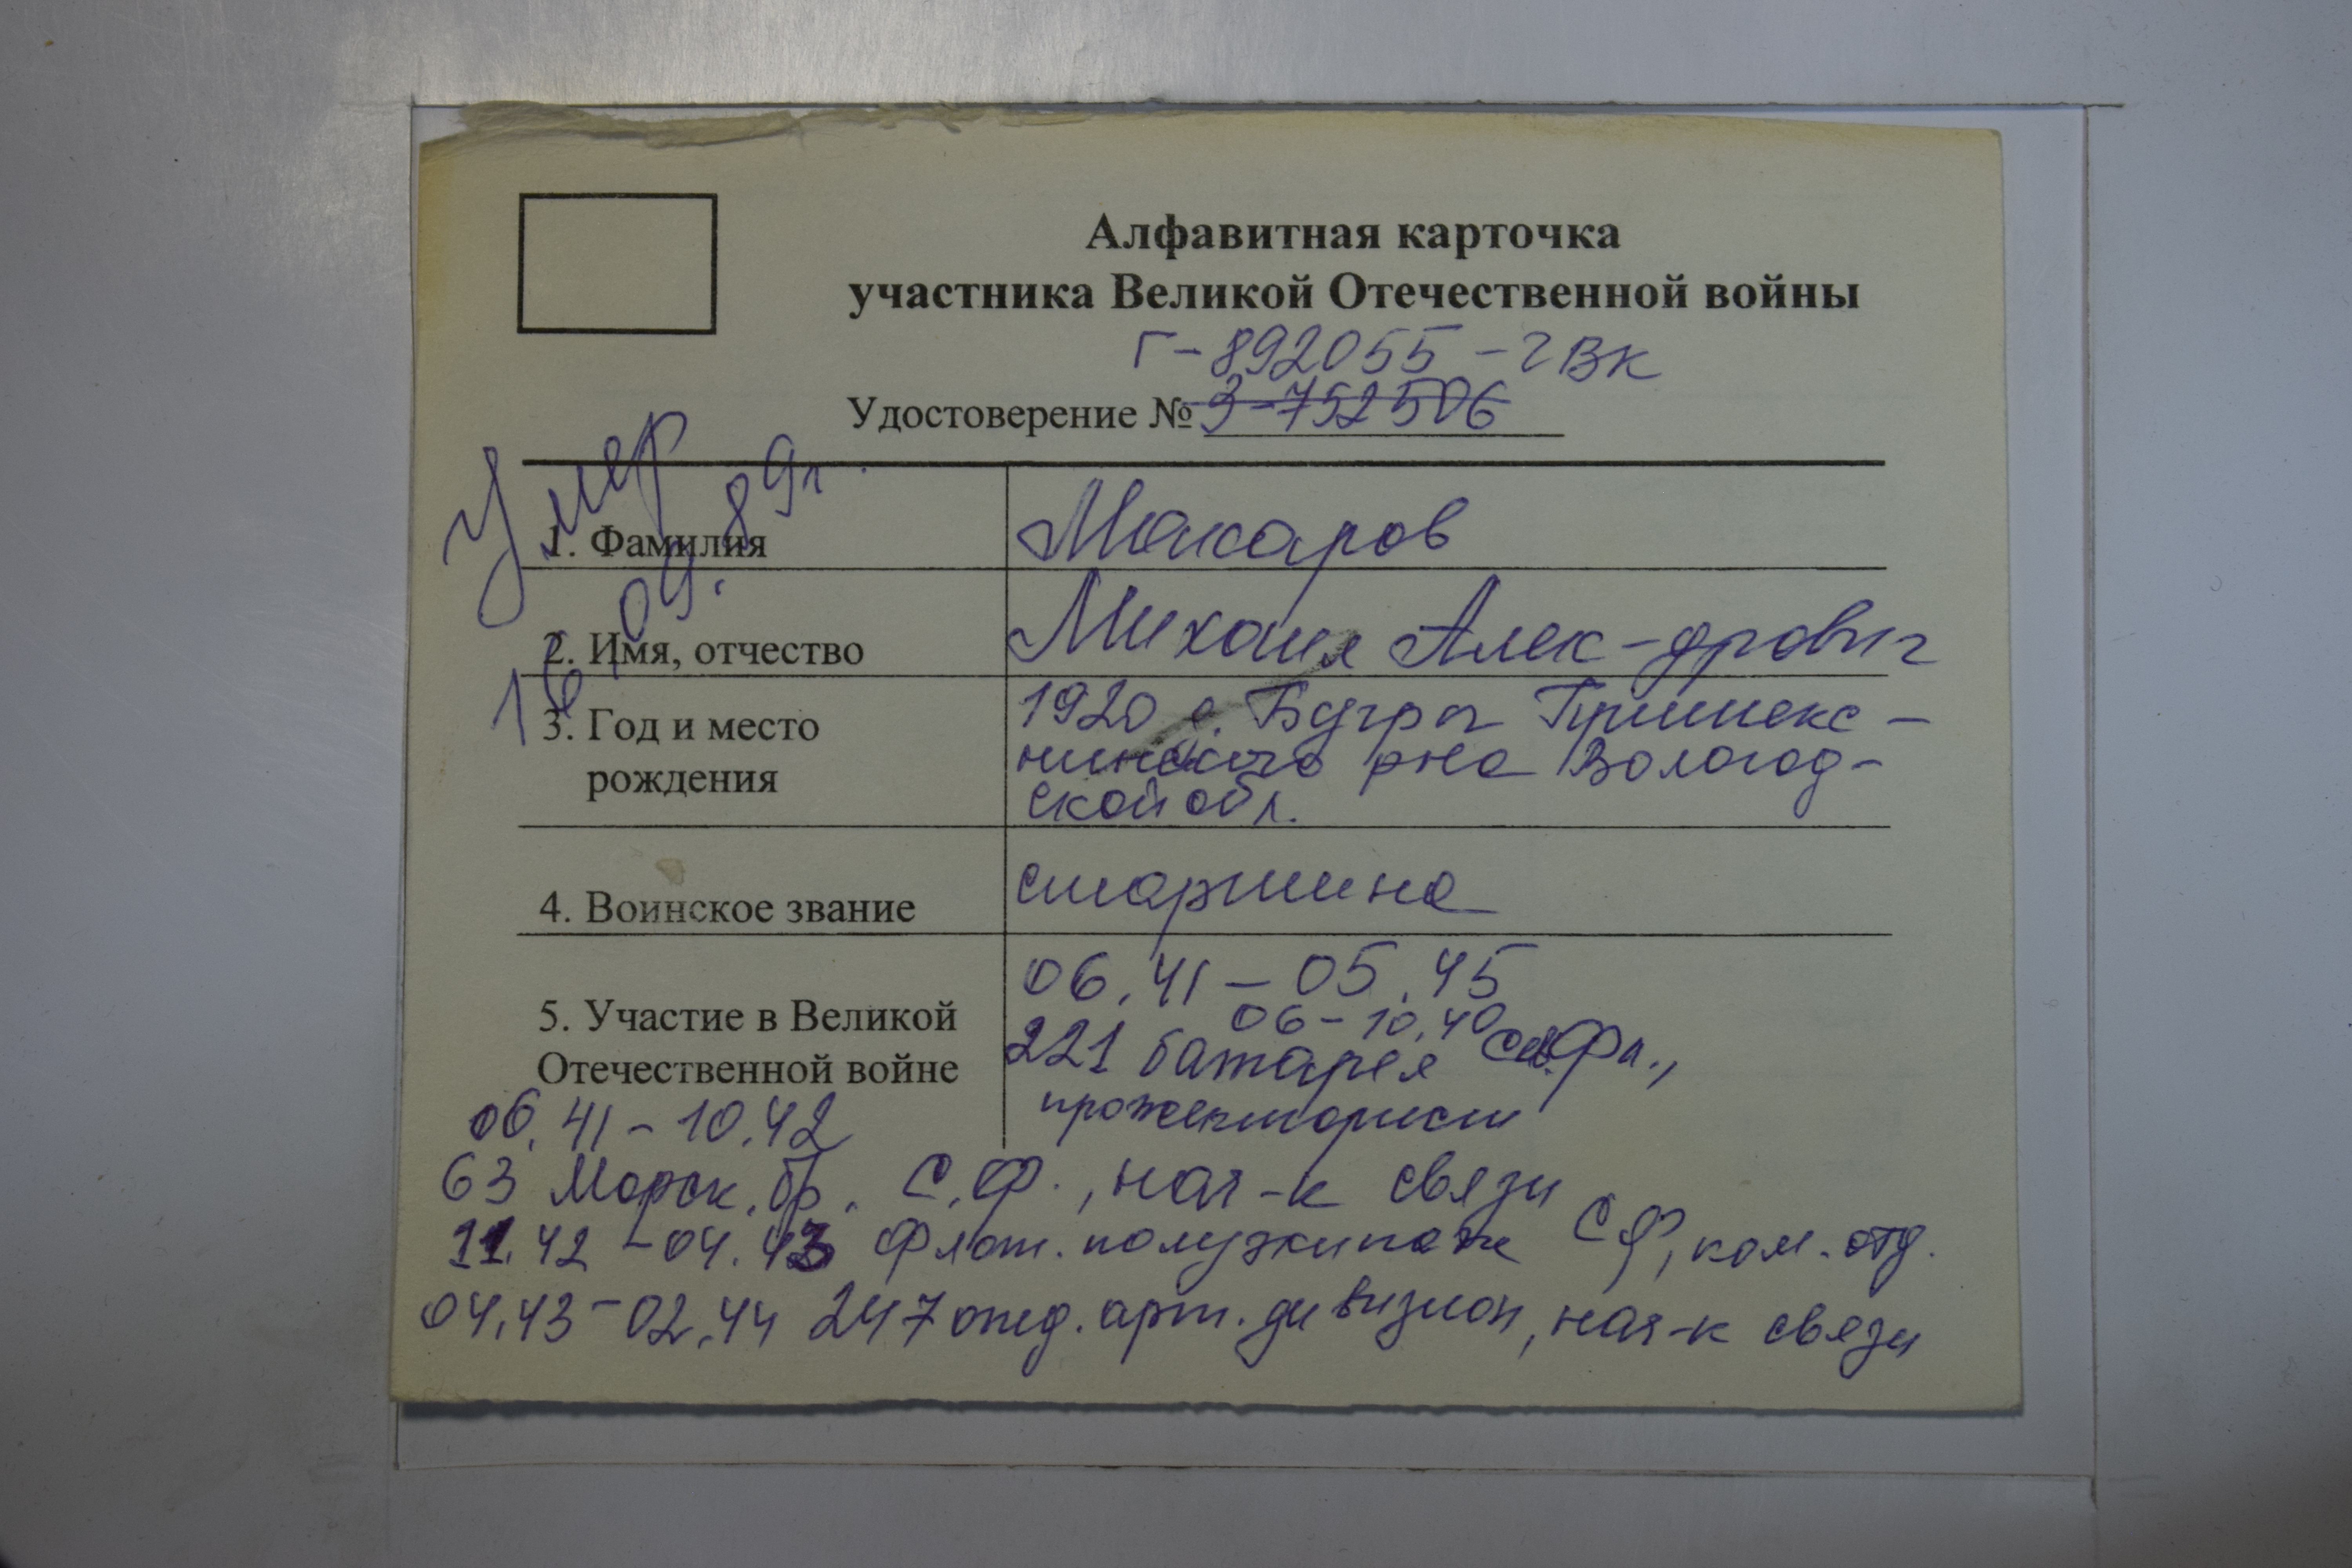 Алфавитная карточка
участника Великой Отечественной войны
Г-892055 - г ВК
Удостоверение № З-752506
Умер
16.09.89г.
1. Фамилия Макаров
2. Имя, отчество Михаил Алек-дрович
3. Год и место 1920 с. Бугры Пришекс-
рождения нинского р-на Вологод-
ской обл.
4. Воинское звание старшина
06.41 - 05.45
5. Участие в Великой 06 - 10.40
Отечественной войне 221 батарея Сев.Фл.,
прожекторист
06.41 - 10.42
63 Морск. бр. С.Ф., нач-к связи
11.42 - 04.43 Флот. полуэкипаж СФ, ком. отд.
04.43 - 02.44 247 отд. арт. дивизион, нач-к связи